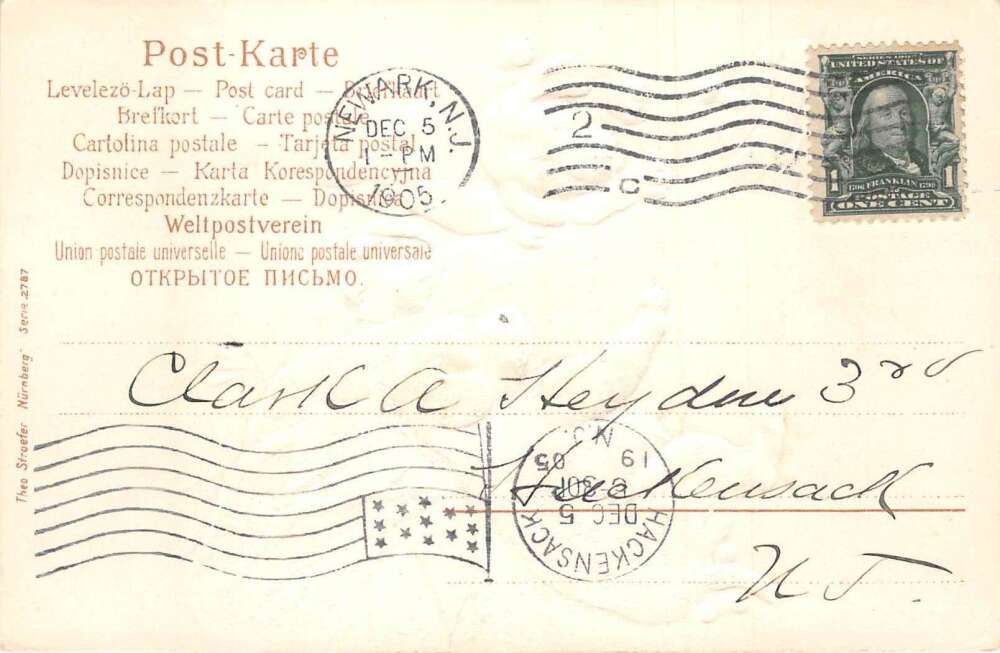 Post-Karte
Levelező-Lap — Post card — Briefkaart
Brefkort — Carte postale
Cartolina postale — Tarjeta postal
Dopisnice — Karta Korespondencyjna
Correspondenzkarte — Dopisnica
Weltpostverein
Union postale universelle — Unione postale universale
ОТКРЫТОЕ ПИСЬМО.
NEWARK, N.J.
DEC 5
1-PM
1905
2
C
SERIES 1902
UNITED STATES OF
AMERICA
1706 FRANKLIN 1790
POSTAGE
1 ONE CENT 1
Theo Stroefer Nürnberg Serie 2787
Clark A Heydon 3rd
Hackensack
N J.
HACKENSACK
DEC 5
-30P
19 05
N.J.